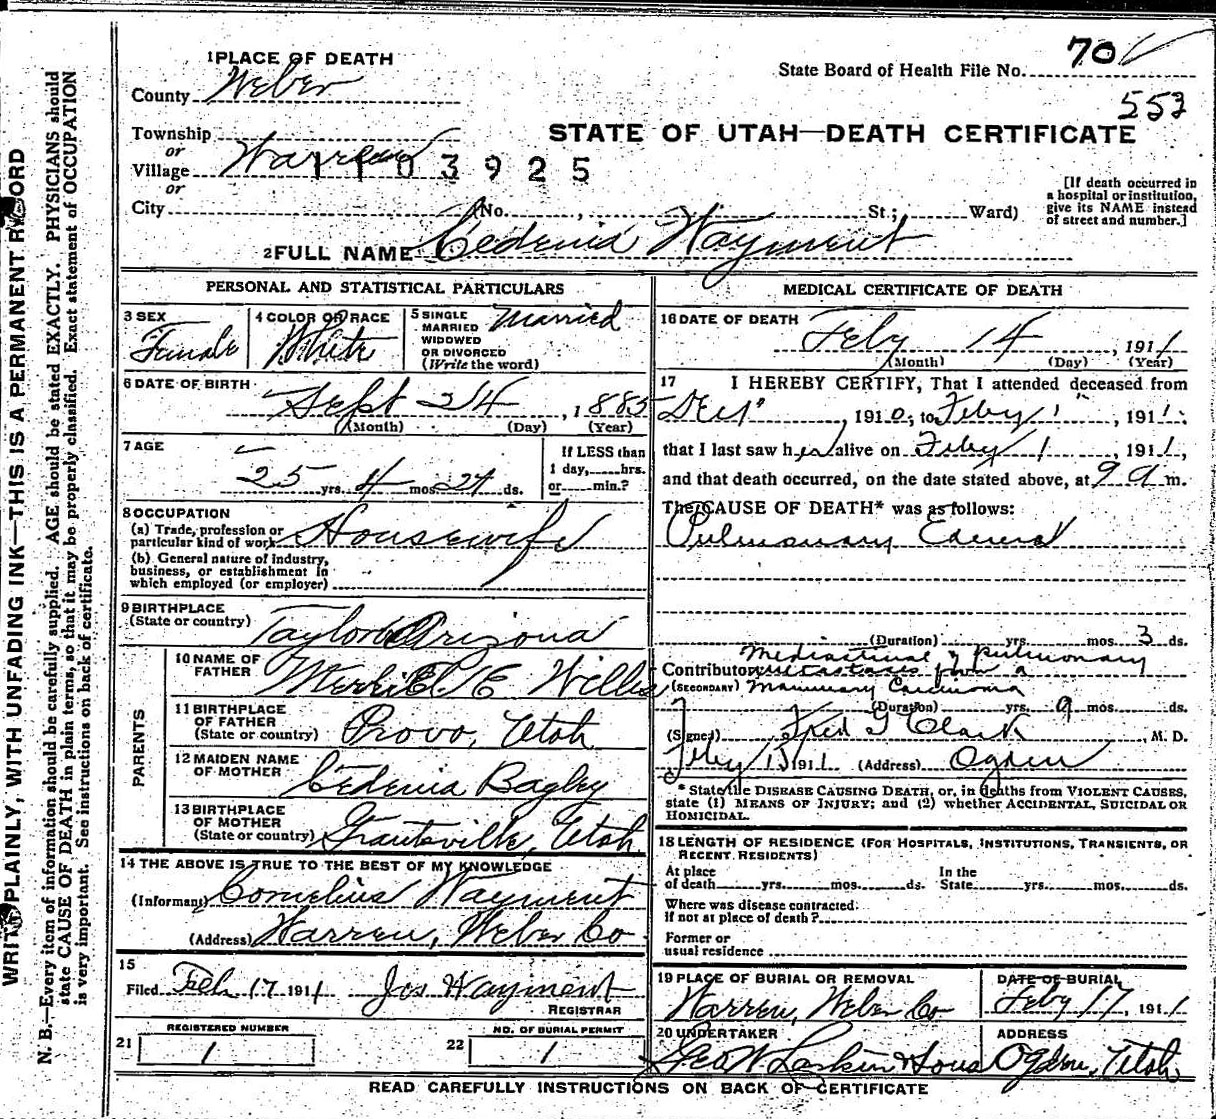 1 PLACE OF DEATH
County Weber
State Board of Health File No. 70
553
STATE OF UTAH—DEATH CERTIFICATE
Township
or
Village Warren
1103925
or
City (No. , St.; Ward)
[If death occurred in
a hospital or institution,
give its NAME instead
of street and number.]
2 FULL NAME Cedenia Wayment
PERSONAL AND STATISTICAL PARTICULARS
3 SEX Female
4 COLOR OR RACE White
5 SINGLE
MARRIED
WIDOWED
OR DIVORCED
(Write the word)
Married
6 DATE OF BIRTH
Sept 24, 1885
(Month) (Day) (Year)
7 AGE
25 yrs. 4 mos. 24 ds.
If LESS than
1 day, hrs.
or min.?
8 OCCUPATION
(a) Trade, profession or
particular kind of work Housewife
(b) General nature of industry,
business, or establishment in
which employed (or employer)
9 BIRTHPLACE
(State or country) Taylor Arizona
PARENTS
10 NAME OF
FATHER Merrill E Willis
11 BIRTHPLACE
OF FATHER
(State or country) Provo, Utah
12 MAIDEN NAME
OF MOTHER Cedenia Bagley
13 BIRTHPLACE
OF MOTHER
(State or country) Grantsville, Utah
14 THE ABOVE IS TRUE TO THE BEST OF MY KNOWLEDGE
(Informant) Cornelius Wayment
(Address) Warren, Weber Co
15
Filed Feb 17 1911 Jos Wayment
REGISTRAR
REGISTERED NUMBER
21 1
NO. OF BURIAL PERMIT
22 1
MEDICAL CERTIFICATE OF DEATH
16 DATE OF DEATH
Feby 14, 1911
(Month) (Day) (Year)
17 I HEREBY CERTIFY, That I attended deceased from
, 1910, to Feby 1", 1911,
that I last saw her alive on Feby 1, 1911,
and that death occurred, on the date stated above, at 9 a m.
The CAUSE OF DEATH* was as follows:
Pulmonary Edema
(Duration) yrs. mos. 3 ds.
Contributory Mediastinal & pulmonary
metastases from a
(SECONDARY) Mammary Carcinoma
(Duration) yrs. 9 mos. ds.
(Signed) Fred G Clark, M. D.
Feby 15 1911 (Address) Ogden
* State the DISEASE CAUSING DEATH, or, in deaths from VIOLENT CAUSES,
state (1) MEANS OF INJURY; and (2) whether ACCIDENTAL, SUICIDAL OR
HOMICIDAL.
18 LENGTH OF RESIDENCE (FOR HOSPITALS, INSTITUTIONS, TRANSIENTS, OR
RECENT RESIDENTS)
At place
of death yrs. mos. ds.
In the
State yrs. mos. ds.
Where was disease contracted
if not at place of death?
Former or
usual residence
19 PLACE OF BURIAL OR REMOVAL
Warren, Weber Co
DATE OF BURIAL
Feby 17, 1911
20 UNDERTAKER
Geo W. Larkin & Sons
ADDRESS
Ogden, Utah
READ CAREFULLY INSTRUCTIONS ON BACK OF CERTIFICATE
WRITE PLAINLY, WITH UNFADING INK—THIS IS A PERMANENT RECORD
N. B.—Every item of information should be carefully supplied. AGE should be stated EXACTLY. PHYSICIANS should
state CAUSE OF DEATH in plain terms, so that it may be properly classified. Exact statement of OCCUPATION
is very important. See instructions on back of certificate.